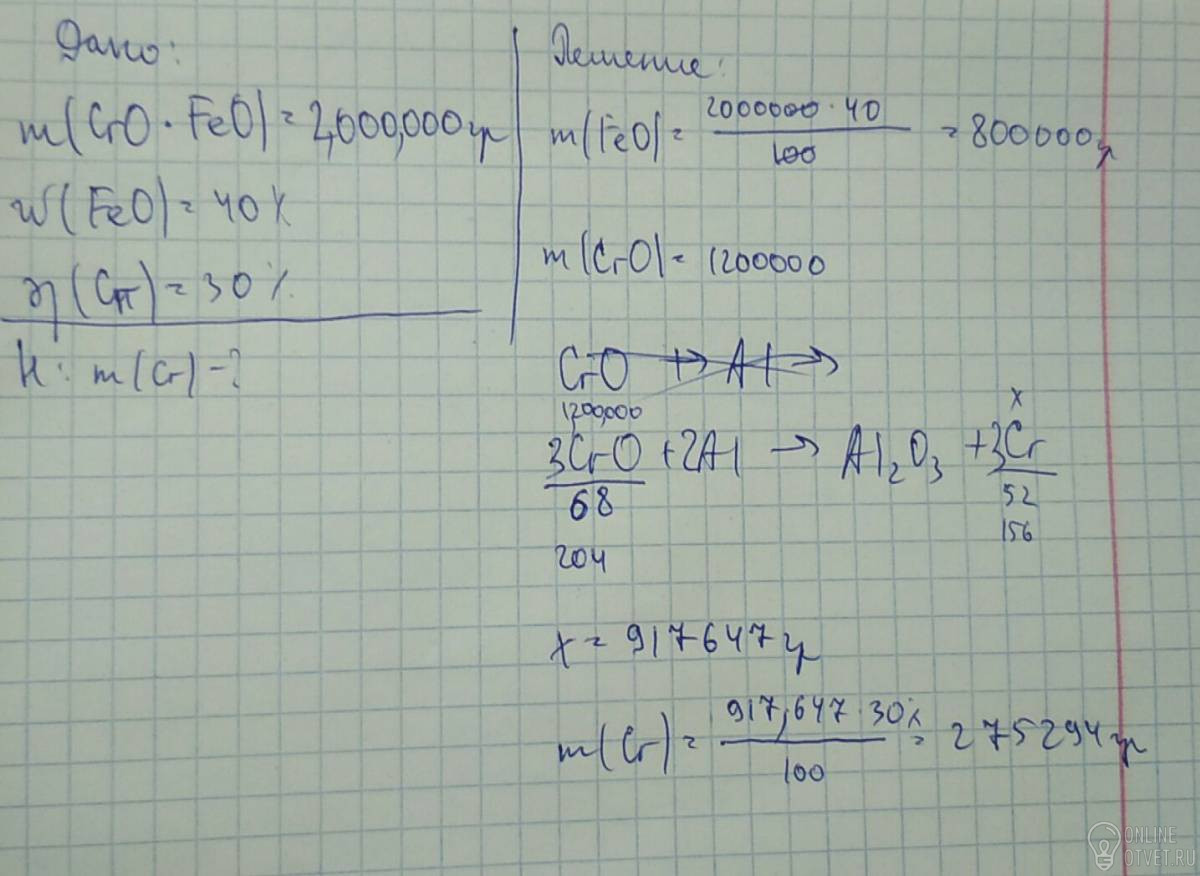 Дано:
m(CrO·FeO)=2,000,000гр
w(FeO)=40%
η(Cr)=30%
Н: m(Cr)-?
Решение:
m(FeO)= 2000000·40 / 100 = 800000г
m(CrO)=1200000
CrO + Al →
1200,000 x
3CrO + 2Al → Al₂O₃ + 3Cr
68 52
204 156
x=917647гр
m(Cr)= 917,647·30% / 100 = 275294гр
ONLINE
OTVET.RU